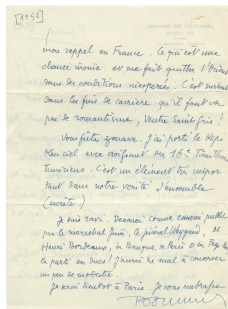 [1952]
mon rappel en France. Ce qui est une
chance inouïe et me fait quitter l'Orient
dans des conditions inespérées. C'est surtout
dans les fins de carrière qu'il faut un
peu de romantisme, ventre saint gris !
Vous fûtes zouave. J'ai porté le képi
bleu ciel avec croissant des 16e Tirailleurs
Tunisiens. C'est un élément très impor
tant dans notre vérité d'ensemble
(secrète)
Je suis ravi. Dénoncé comme ennemi public
par le maréchal Juin, le général Weygand,
Henri Bordeaux, la Banque de Paris et des Pays-Bas
Je serai bientôt à Paris. Je vous embrasse